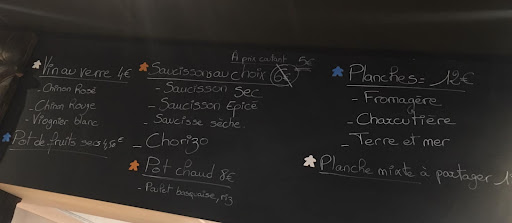 Vin au verre 4€
- Chinon Rosé
- Chinon Rouge
- Viognier blanc
Pot de fruits secs 4,50€
A prix coûtant 5€
Saucissons au choix
- Saucisson sec
- Saucisson Epicé
- Saucisse sèche
- Chorizo
Pot chaud 8€
- Poulet basquaise, riz
Planches = 12€
- Fromagère
- Charcutière
- Terre et mer
Planche mixte à partager